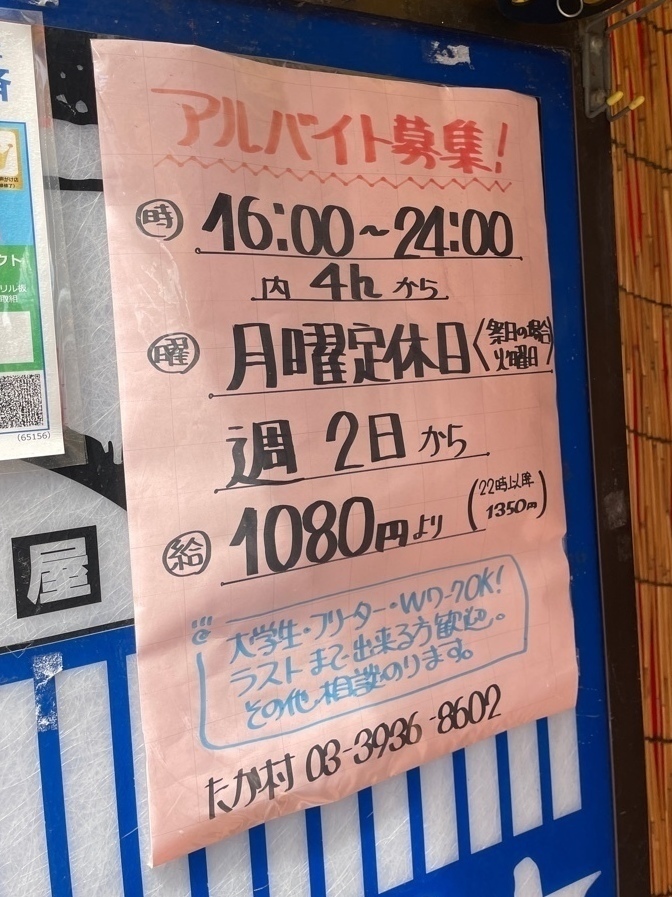 アルバイト募集!
時 16:00~24:00
内 4h から
曜 月曜定休日〈祭日の場合
火曜日〉
週 2日 から
給 1080円より (22時以降
1350円)
大学生・フリーター・WワークOK!
ラストまで出来る方歓迎。
その他、相談のります。
たか村 03-3936-8602
屋
クト
(65156)